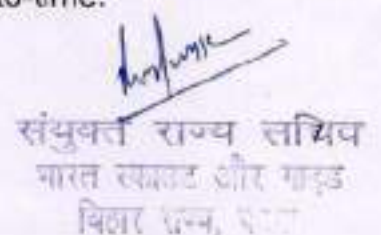 to-time.
संयुक्त राज्य सचिव
भारत स्काउट और गाइड
बिहार राज्य,